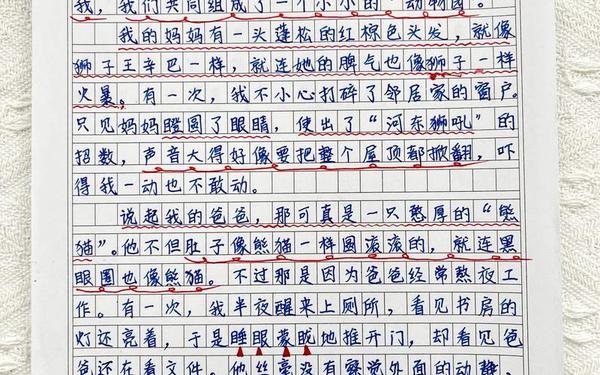 我，我们共同组成了一个小小的"动物园"。
我的妈妈有一头蓬松的红棕色头发，就像
狮子王辛巴一样，就连她的脾气也像狮子一样
火暴。有一次，我不小心打碎了邻居家的窗户。
只见妈妈瞪圆了眼睛，使出了"河东狮吼"的
招数，声音大得好像要把整个屋顶都掀翻，吓
得我一动也不敢动。
说起我的爸爸，那可真是一只憨厚的"熊
猫"。他不但肚子像熊猫一样圆滚滚的，就连黑
眼圈也像熊猫。不过那是因为爸爸经常熬夜工
作。有一次，我半夜醒来上厕所，看见书房的
灯还亮着，于是睡眼蒙眬地推开门，却看见爸
爸还在看文件。他丝毫没有察觉外面的动静，